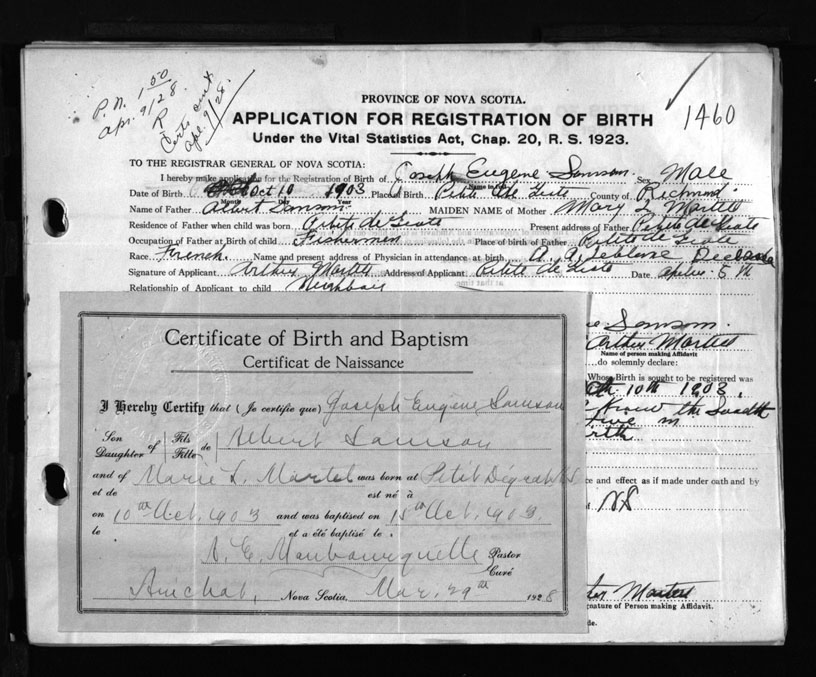 P.N. 1.00
Apr. 9/28.
R
Certs. sent
Apl. 9/28.
1460
PROVINCE OF NOVA SCOTIA.
APPLICATION FOR REGISTRATION OF BIRTH
Under the Vital Statistics Act, Chap. 20, R. S. 1923.
TO THE REGISTRAR GENERAL OF NOVA SCOTIA:
I hereby make application for the Registration of Birth of Joseph Eugene Samson. Sex Male
Name in Full
Date of Birth Oct 10 1903 Place of Birth Petite de Grat County of Richmond.
Month Day Year
Name of Father Albert Samson MAIDEN NAME of Mother Mary L. Martell
Residence of Father when child was born Petite de Grat Present address of Father Petite de Grat
Occupation of Father at Birth of child Fishermen Place of birth of Father Petite de Grat
Race French. Name and present address of Physician in attendance at birth A. A. Leblanc
Signature of Applicant Arthur Martell Address of Applicant Petite de Grat Date 5th
Relationship of Applicant to child Neighbair
at that time
Samson.
Arthur Martell
Name of person making Affidavit
do solemnly declare:
Whose Birth is sought to be registered was
10th 1903,
know the
in
birth
ce and effect as if made under oath and by
NS
Martell
gnature of Person making Affidavit.
de.
Certificate of Birth and Baptism
Certificat de Naissance
I Hereby Certify that (Je certifie que) Joseph Eugène Samson
Son Daughter of Fils Fille de Albert Samson
and of Marie L. Martel was born at Petit Dégrat N.S.
et de est né à
on 10th Oct. 1903 and was baptised on 15th Oct. 1903.
le et a été baptisé le
Pastor
Curé
Arichat, Nova Scotia, Mar. 29th 1928